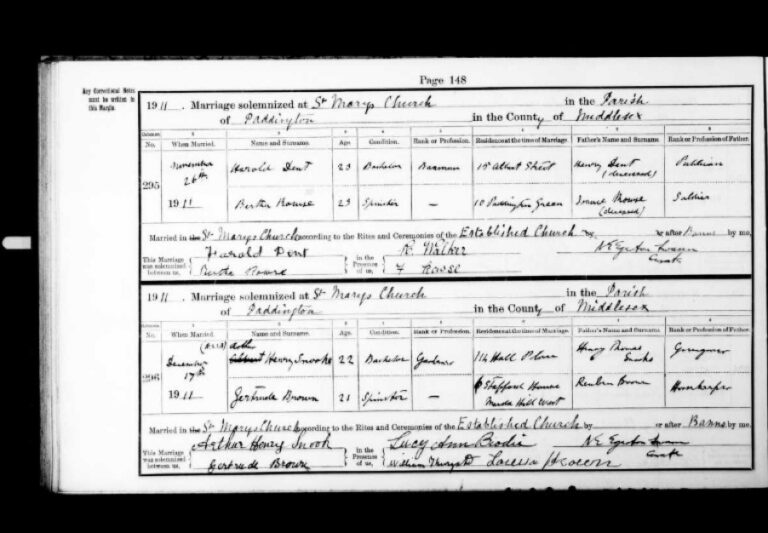 Page 148
Any Correctional Notes
must be written in
this Margin.
1911. Marriage solemnized at St Marys Church in the Parish
of Paddington in the County of Middlesex
No. When Married. Name and Surname. Age Condition. Rank or Profession. Residence at the time of Marriage. Father's Name and Surname. Rank or Profession of Father.
295
November 26th Harold Dent 23 Bachelor Barman Street Henry Dent (deceased)
1911 Bertha Rowse 23 Spinster — 10 Paddington Green Rowse (deceased) Soldier
Married in the St Marys Church according to the Rites and Ceremonies of the Established Church by or after Banns by me,
This Marriage was solemnized between us, Harold Dent in the Presence of us, R Walker
Bertha Rowse F Rowse Curate
1911. Marriage solemnized at St Marys Church in the Parish
of Paddington in the County of Middlesex
No. When Married. Name and Surname. Age Condition. Rank or Profession. Residence at the time of Marriage. Father's Name and Surname. Rank or Profession of Father.
296
December 17th Henry Snooks 22 Bachelor Gardener Hall Place Henry Thomas Snooks
1911 Gertrude Brown 21 Spinster — Stafford House Maida Hill West Reuben Brown
Married in the St Marys Church according to the Rites and Ceremonies of the Established Church by or after Banns by me,
This Marriage was solemnized between us, Arthur Henry Snook in the Presence of us, Lucy Ann Brodie
Gertrude Brown William Curate